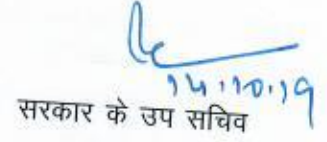 14.10.19
सरकार के उप सचिव